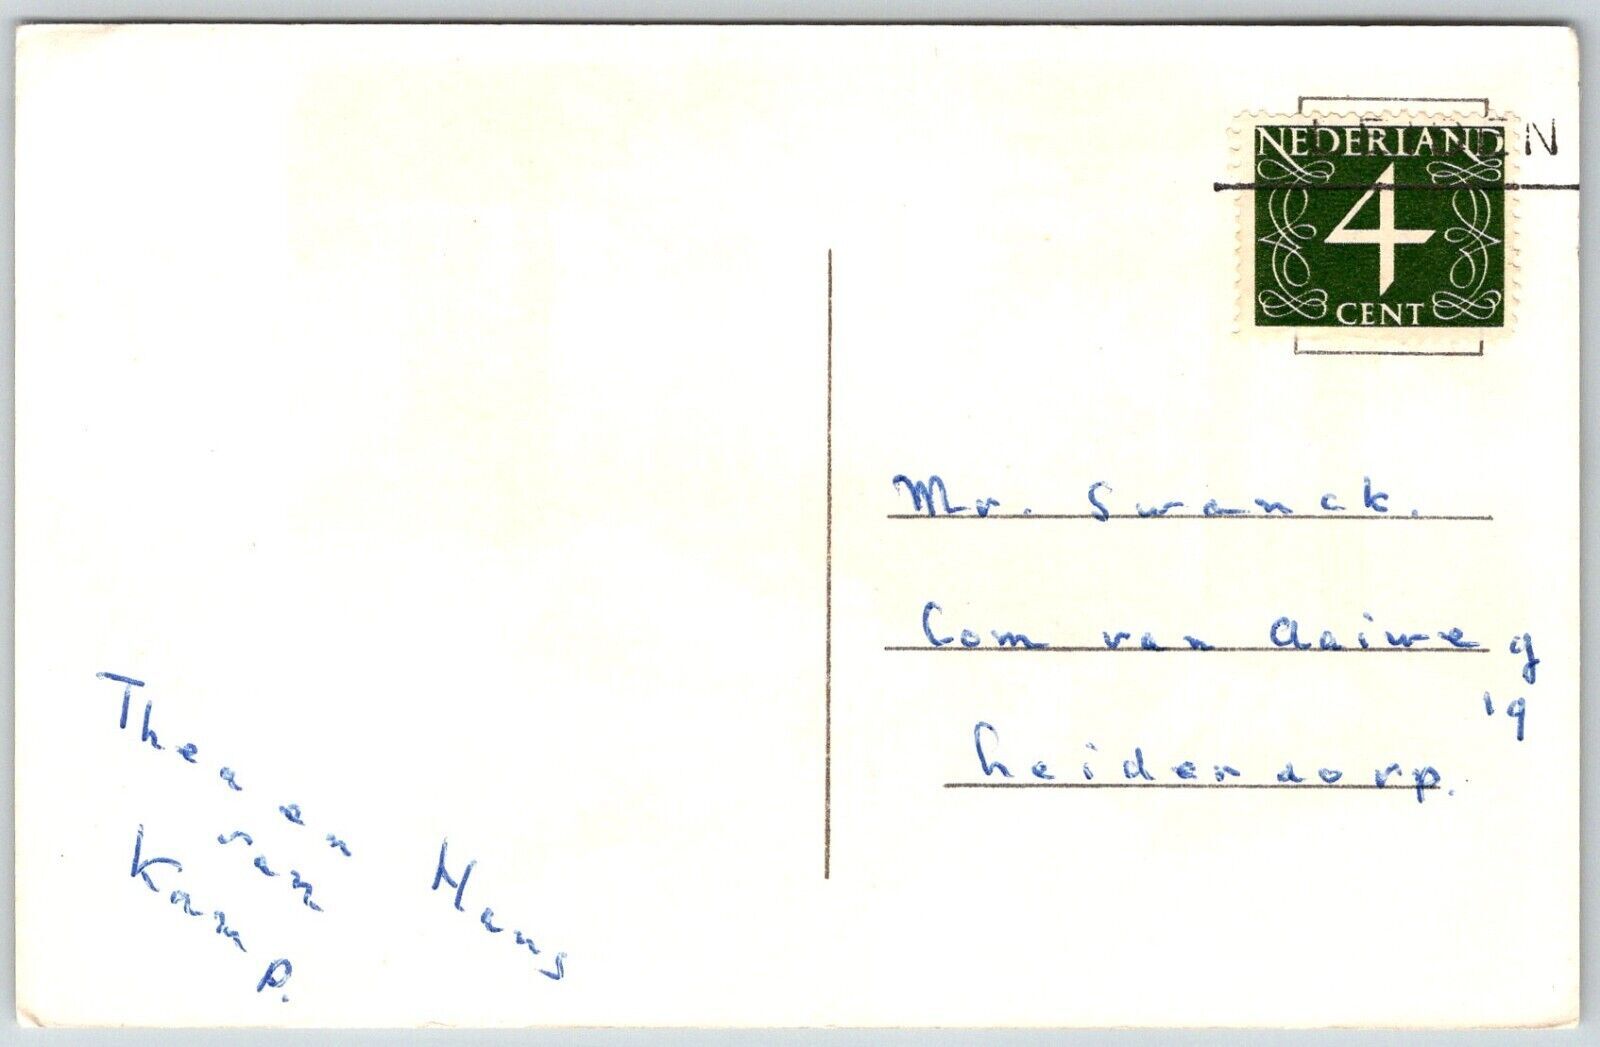 LEIDEN
NEDERLAND
4
CENT
Mr. Swanck.
Com van Aaiweg
19
Leiderdorp.
Thea en Hans
van
Kamp.